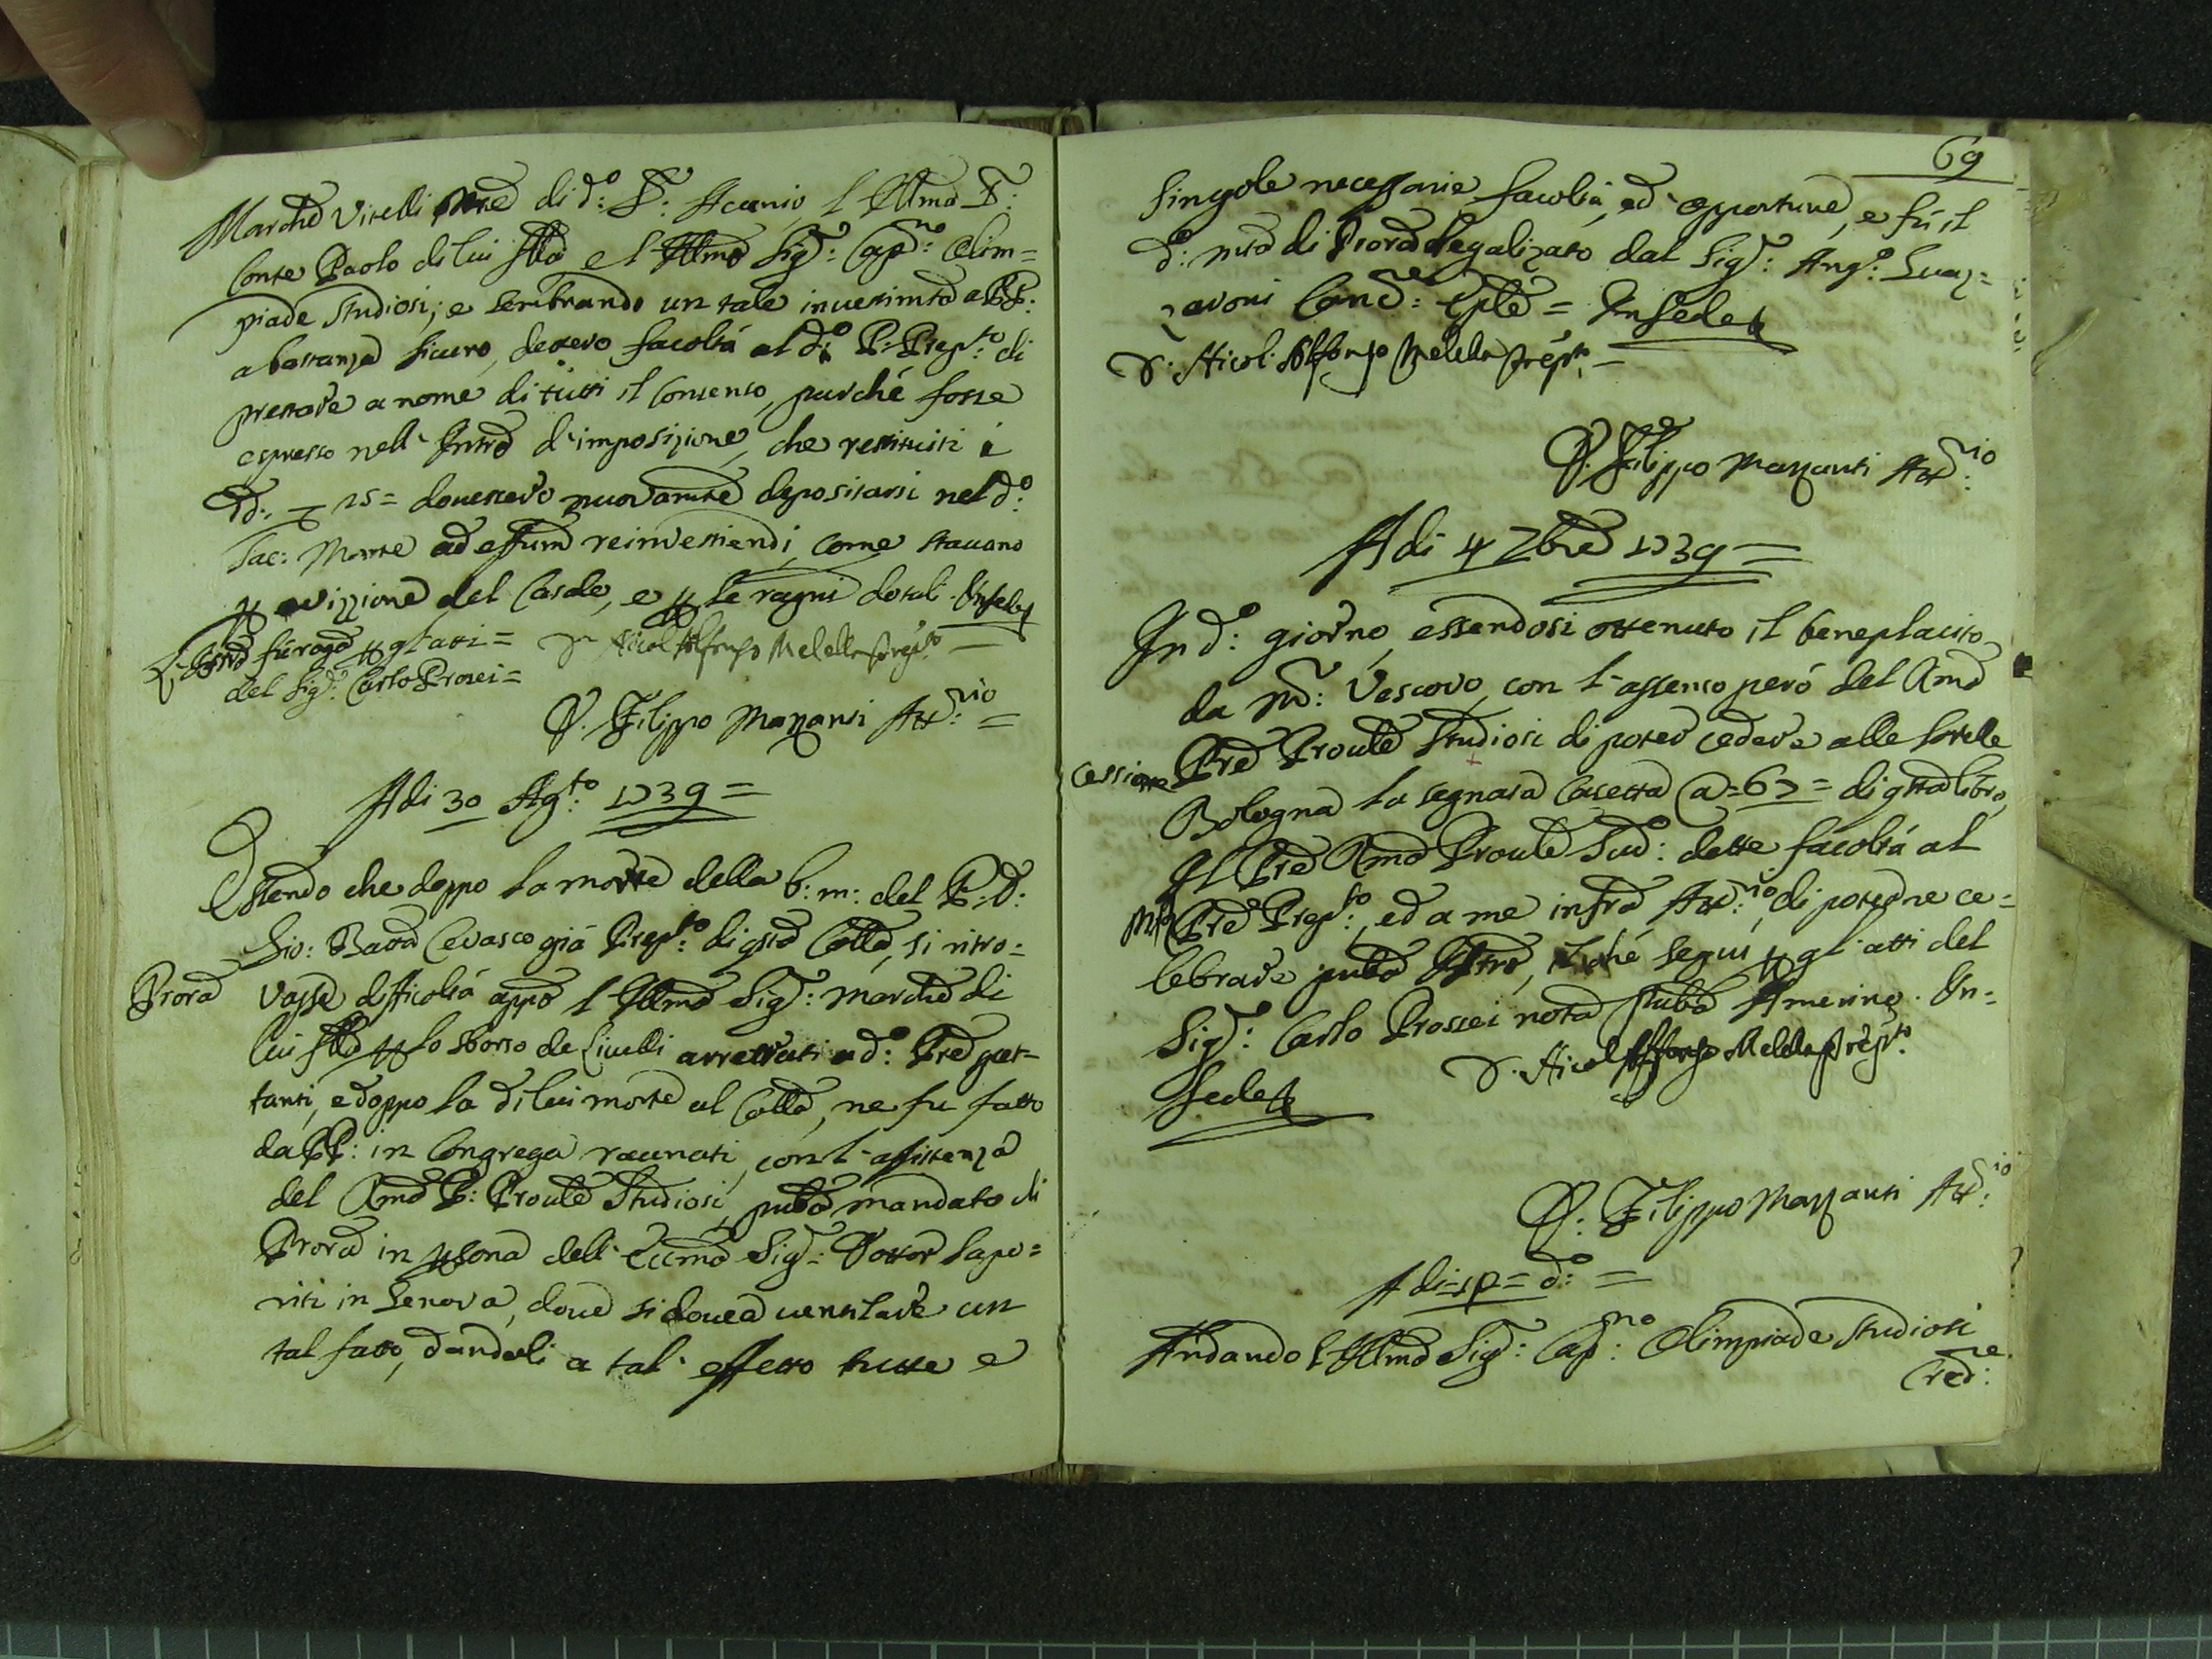 Marchd Vitelli Mred di dº: S: Ascanio, l'Illmo S:
Conte Paolo di lui flld e l'Illmo Sigr: Capno: Olim=
piade Studiosi; e sembrando un tale investimto a PP:
abastanza sicuro, dettero facoltà al do: P: Prepto: di
prestare a nome di tutti il Consenso, purché fosse
espresso nell'Intro d'imposizione, che restituiti i
dd: 25= dovessero nuovamte depositarsi nel do:
Sac: Monte ad effum reinvestiendi, come stavano
p evizzione del Casale, e p le ragni dotali. In fede
L'Istro fù rogo p gl'atti =
del Sigr: Carlo Prosei =
D. Nicol Alfonso Melella Prepto
D. Filippo Mazzanti Attrio: =
Adi 30 Agto: 1739 =
Essendo che doppo la morte della b: m: del P: D:
Gio: Batta Cevasco già Prepto: di qsto Collo, si ritro=
Prora
vasse difficoltà appo l'Illmo Sigr: Marche di
lui fllo p lo sborso de Livelli arretrati a do: Pre spet=
tanti, e doppo la di lui morte al Collo, ne fu fatto
da PP: in Congrega raunati, con l'assistenza
del Rmo P: Proule Studiosi, pubo mandato di
Prora in psona dell'Eccmo Sigr: Dottor Sapo=
riti in Genova, dove si dovea ventilare un
tal fatto, dandoli a tal'effetto tutte e
69
singole necessarie facoltà, ed opportune, e fù il
do: mto di Prora legalizato dal Sigr: Ango: Guaz=
zaroni Cance: Eple = In fede
D. Nicol: Alfonso Melella Prepto
D. Filippo Mazzanti Attrio:
Adi 4 7bre 1739 =
In do: giorno, essendosi ottenuto il beneplacito
da Mr: Vescovo, con l'assenso però del Rmo
Cessione
Pre Proule Studiosi di poter cedere alle Sorelle
Bologna la segnata Casetta a = 67 = di qsto libro,
Il Pre Rmo Proule Sudo: dette facoltà al
Pre Prepto:, ed a me infro Attrio: di poterne ce=
lebrare pubo Istro, il ché seguì p gl'atti del
Sigr: Carlo Prossei noto pubo Amerino. In=
fede
D. Nicol Alfonso Melella Prepto
D. Filippo Mazzanti Attrio:
Adi = 12 = do: =
Andando l'Illmo Sigr: Capno: Olimpiade Studiosi
Crede: